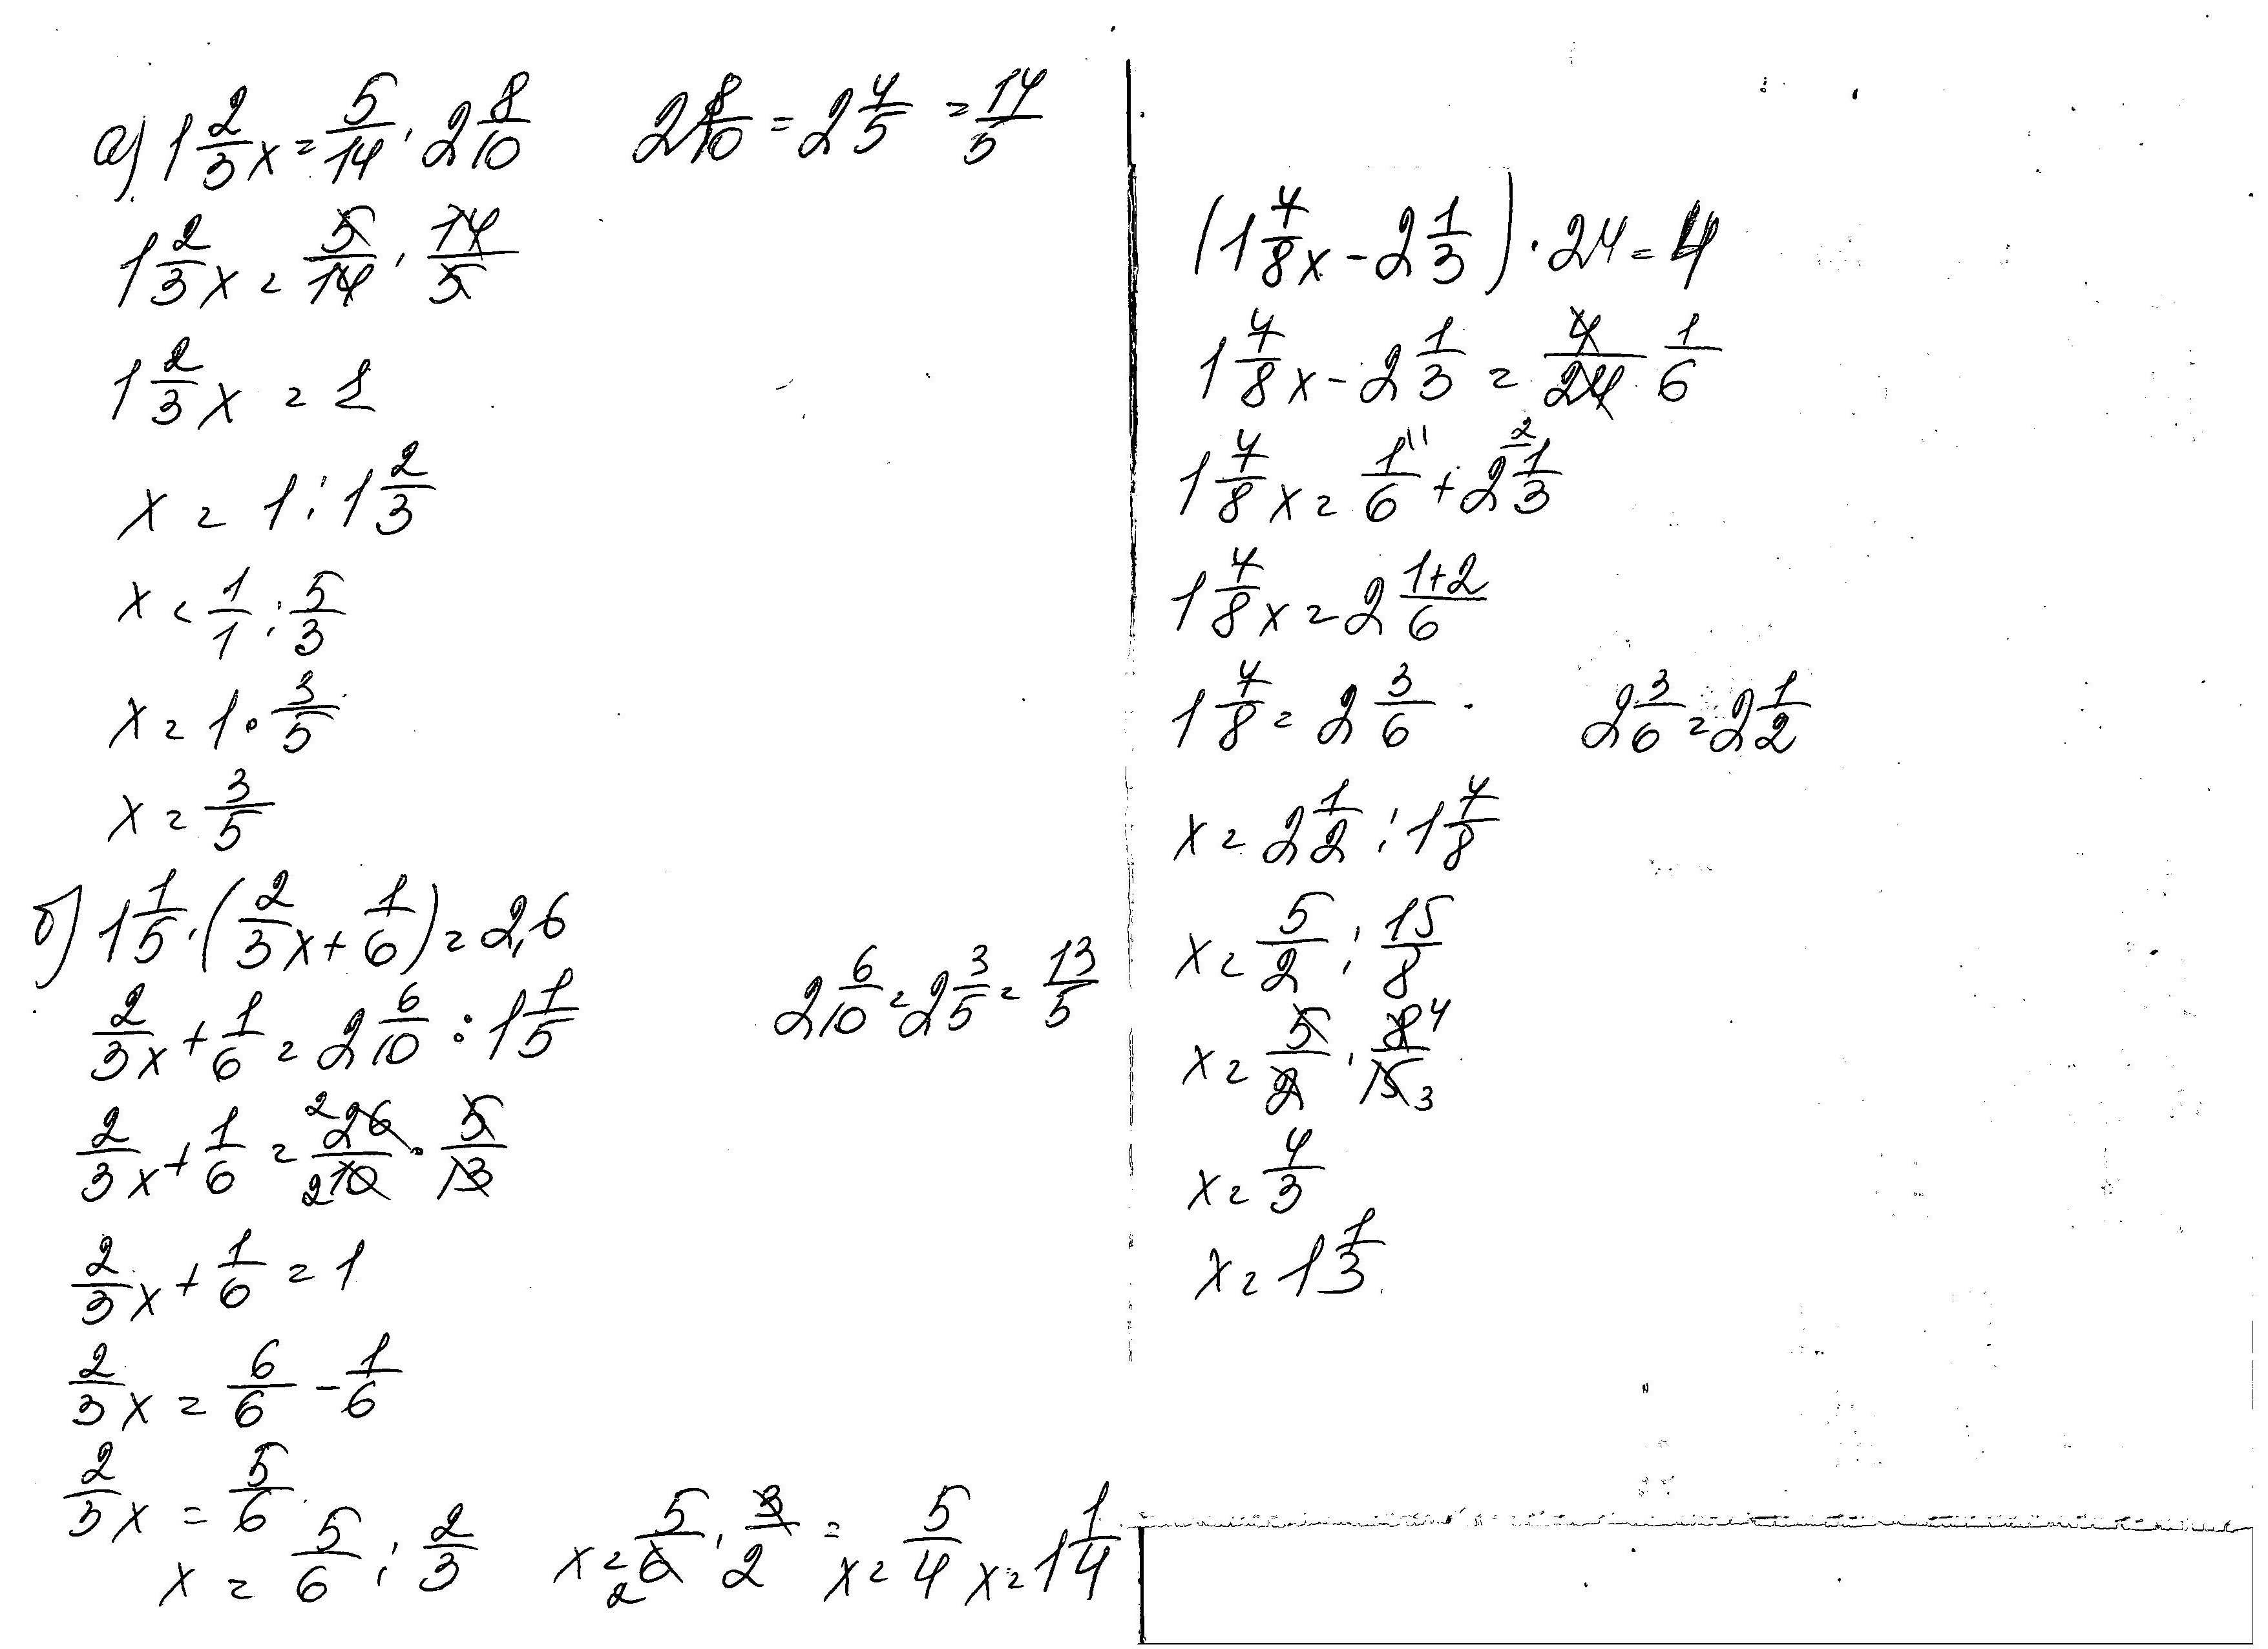 а) 1 2/3 x = 5/14 · 2 8/10    2 8/10 = 2 4/5 = 14/5
1 2/3 x = 5/14 · 14/5
1 2/3 x = 1
x = 1 : 1 2/3
x = 1/1 : 5/3
x = 1 · 3/5
x = 3/5
б) 1 1/5 · (2/3 x + 1/6) = 2,6
2/3 x + 1/6 = 2 6/10 : 1 1/5    2 6/10 = 2 3/5 = 13/5
2/3 x + 1/6 = 2 26/10 2 · 5/13
2/3 x + 1/6 = 1
2/3 x = 6/6 - 1/6
2/3 x = 5/6
x = 5/6 : 2/3    x = 5/6 2 · 3/2 =    x = 5/4    x = 1 1/4
(1 7/8 x - 2 1/3) · 24 = 4
1 7/8 x - 2 1/3 = 4/24 1/6
1 7/8 x = 1/6 + 2 1/3 2
1 7/8 x = 2 1+2/6
1 7/8 = 2 3/6    2 3/6 = 2 1/2
x = 2 1/2 : 1 7/8
x = 5/2 : 15/8
x = 5/2 · 8/15 4 3
x = 4/3
x = 1 1/3